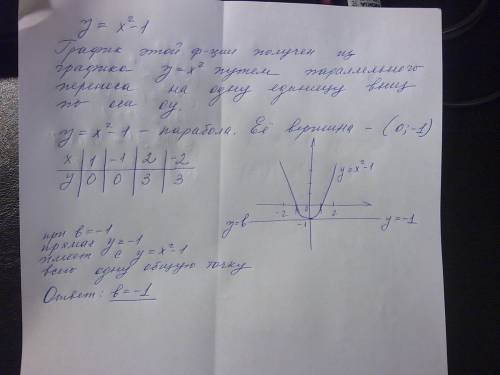 y = x²-1
График этой ф-ции получен из
графика y=x² путем параллельного
переноса на одну единицу вниз
по оси оу.
y=x²-1 - парабола. Её вершина - (0;-1)
x | 1 | -1 | 2 | -2
y | 0 | 0 | 3 | 3
y=x²-1
-2 2
-1
y=в y=-1
при в=-1
прямая y=-1
имеет с y=x²-1
всего одну общую точку
Ответ: в=-1